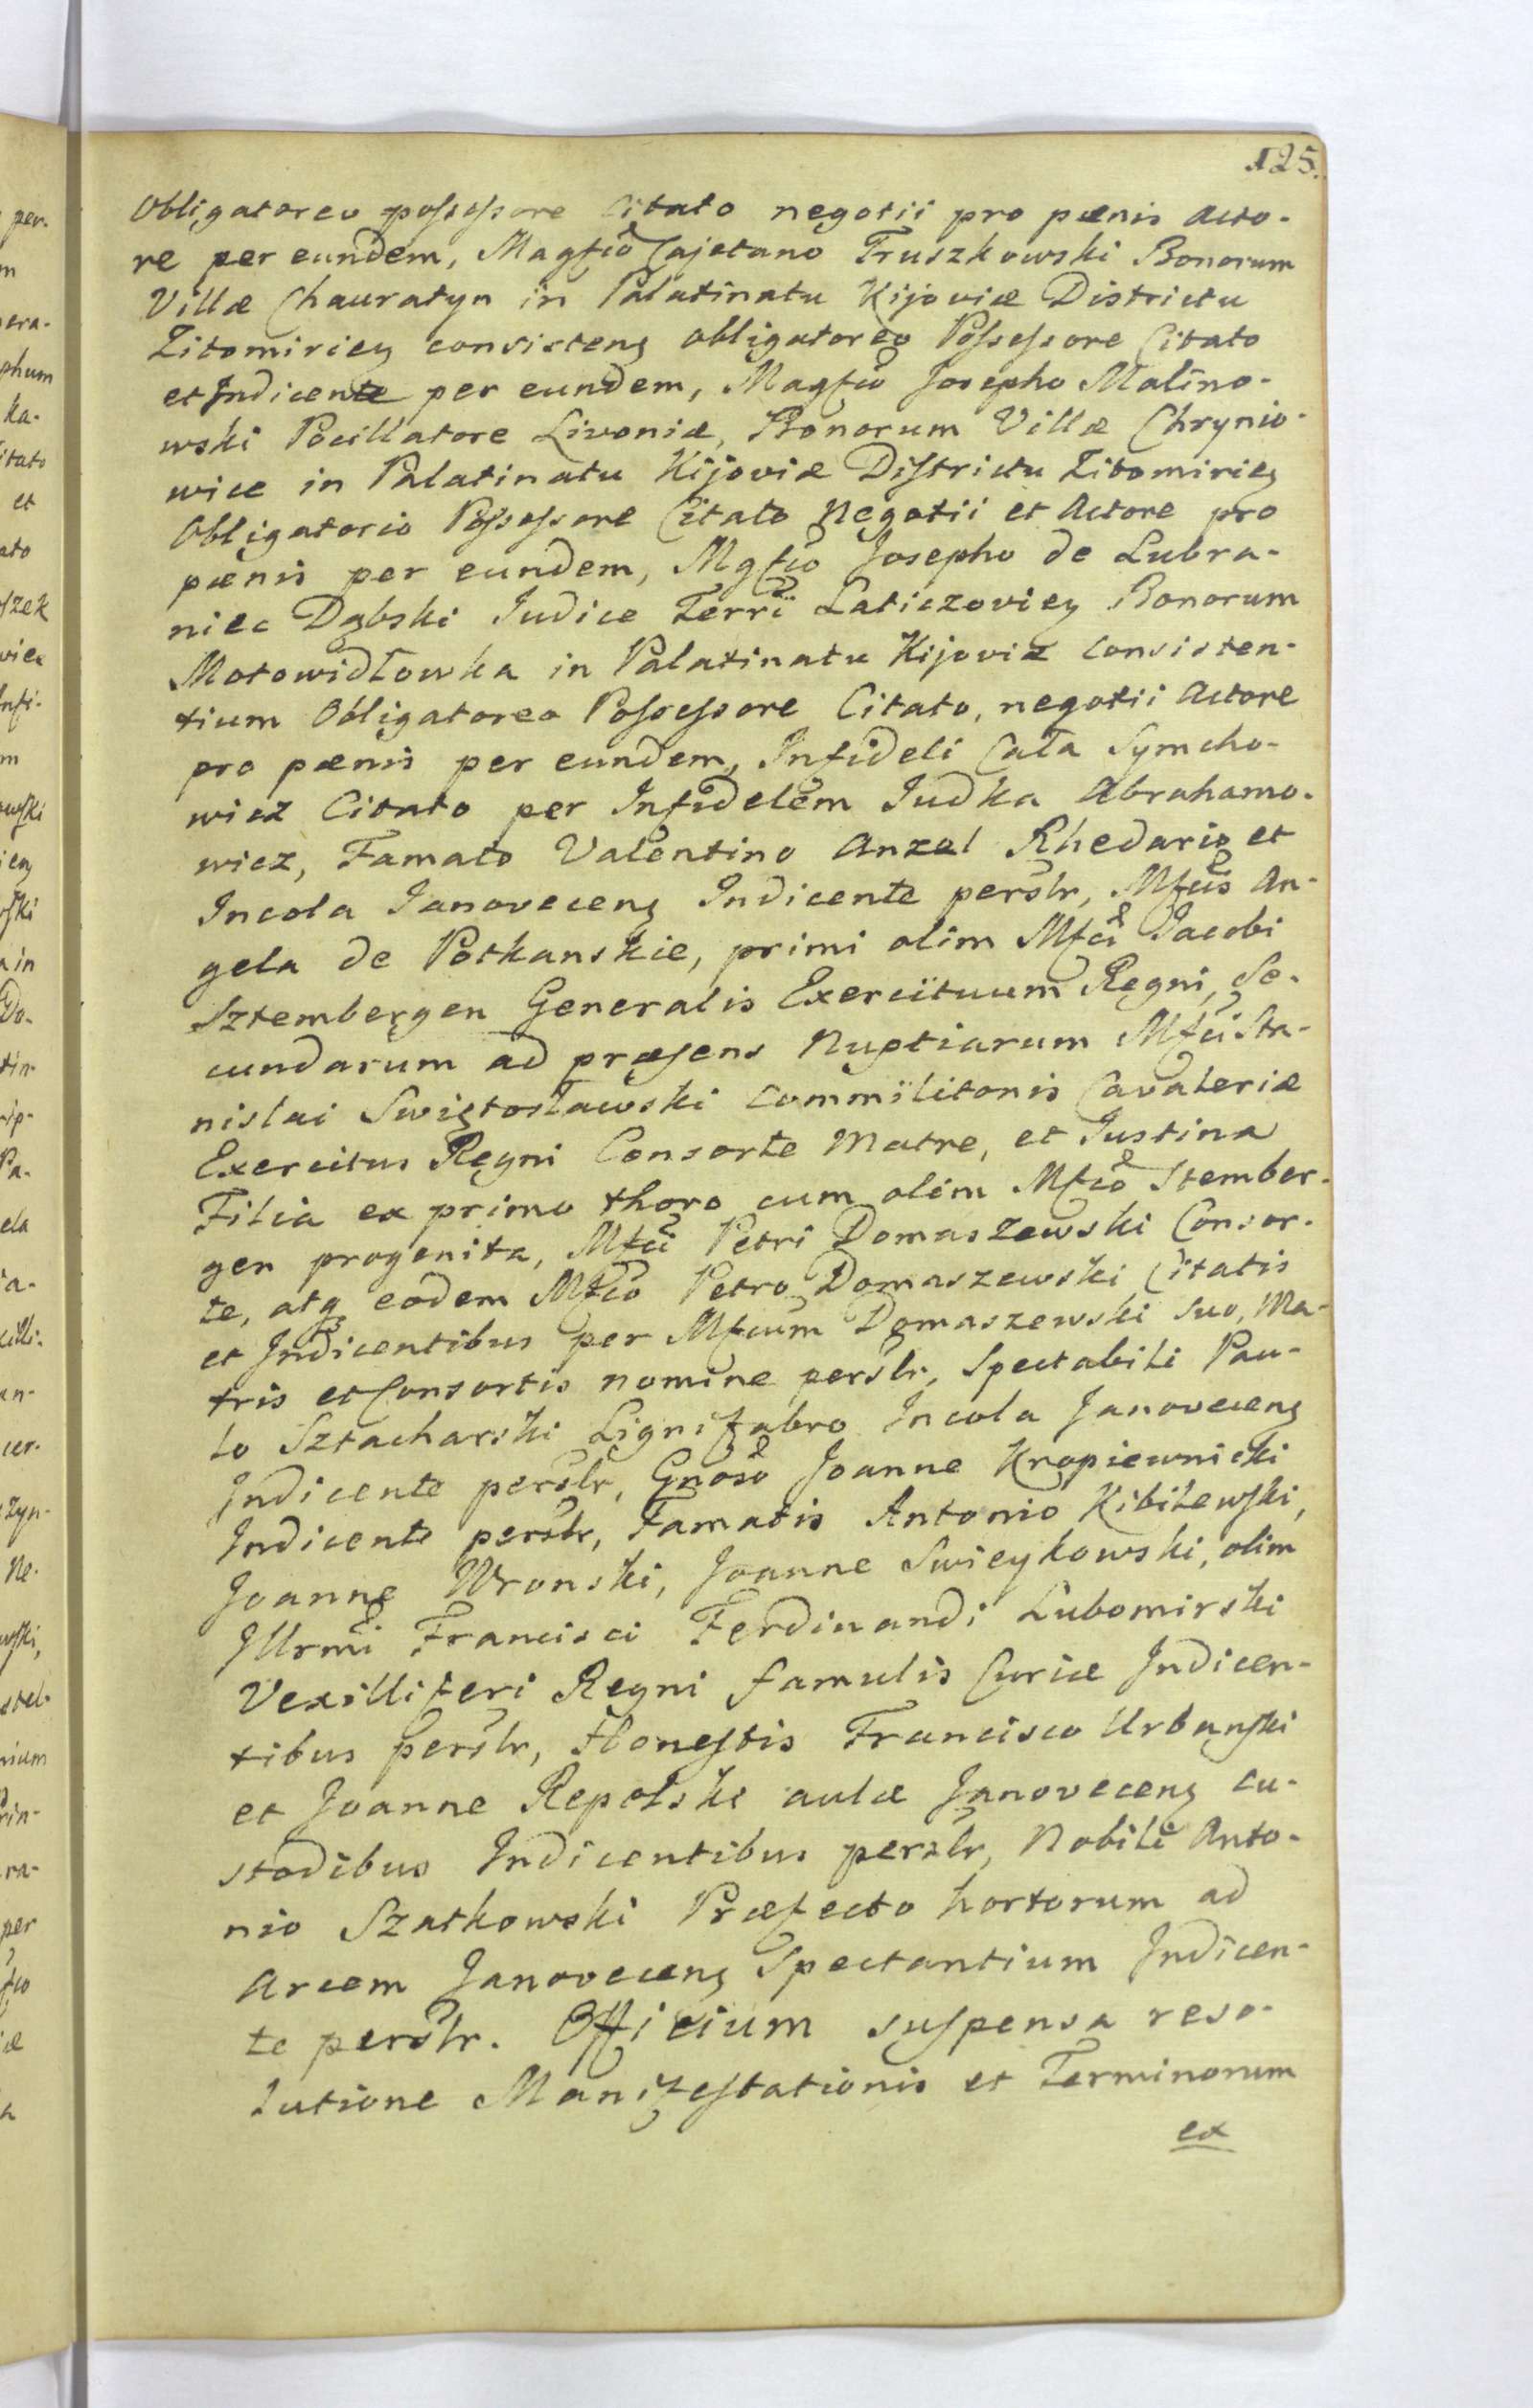 125.
Obligatoreo possessore Citato negotii pro pœnis Acto-
re per eundem, Magfco Cajetano Truszkowski Bonorum
Villæ Chauratyn in Palatinatu Kijoviæ Districtu
Zitomirien consisten obligatoreo Possessore Citato
et Indicente per eundem, Magfco Josepho Malino-
wski Pocillatore Livoniæ, Bonorum Villæ Chrynio-
wice in Palatinatu Kijoviæ Districtu Zitomirien
Obligatorio Possessore Citato Negotii et Actore pro
pœnis per eundem, Mgfco Josepho de Lubra-
niec Dąbski Judice Terri Laticzovien Bonorum
Motowidłowka in Palatinatu Kijoviæ Consisten-
tium Obligatoreo Possessore Citato, negotii Actore
pro pœnis per eundem, Infideli Cała Symcho-
wicz Citato per Infidelem Judka Abrahamo-
wicz, Famato Valentino Anzel Rhedario et
Incola Janovecen Indicente perslr, Mfcis An-
gela de Potkanskie, primi olim Mfci Jacobi
Sztembergen Generalis Exerciituum Regni, Se-
cundarum ad præsens Nuptiarum Mfci Sta-
nislai Swiętosławski Commilitonis Cavaleriæ
Exercitus Regni Consorte Matre, et Justina
Filia ex primo thoro cum olim Mfco Stember-
gen progenita, Mfci Petri Domaszewski Consor-
te, atq eodem Mfco Petro Domaszewski Citatis
et Indicentibus per Mfcum Domaszewski suo, Ma-
tris et Consortis nomine perslr, Spectabili Pau-
lo Sztacharski Lignifabro Incola Janovecen
Indicente perslr, Gnoso Joanne Kropiewnicki
Indicente perslr, Famatis Antonio Kibilewski,
Joanne Wronski, Joanne Swieykowski, olim
Illrmi Francisci Ferdinandi Lubomirski
Vexilliferi Regni famulis Curiæ Indicen-
tibus perslr, Honestis Francisco Urbanski
et Joanne Repelski aulæ Janovecen cu-
stodibus Indicentibus perslr, Nobili Anto-
nio Szatkowski Præfecto hortorum ad
Arcem Janovecen Spectantium Indicen-
te perslr. Officium suspensa reso-
lutione Manifestationis et Terminorum
ex